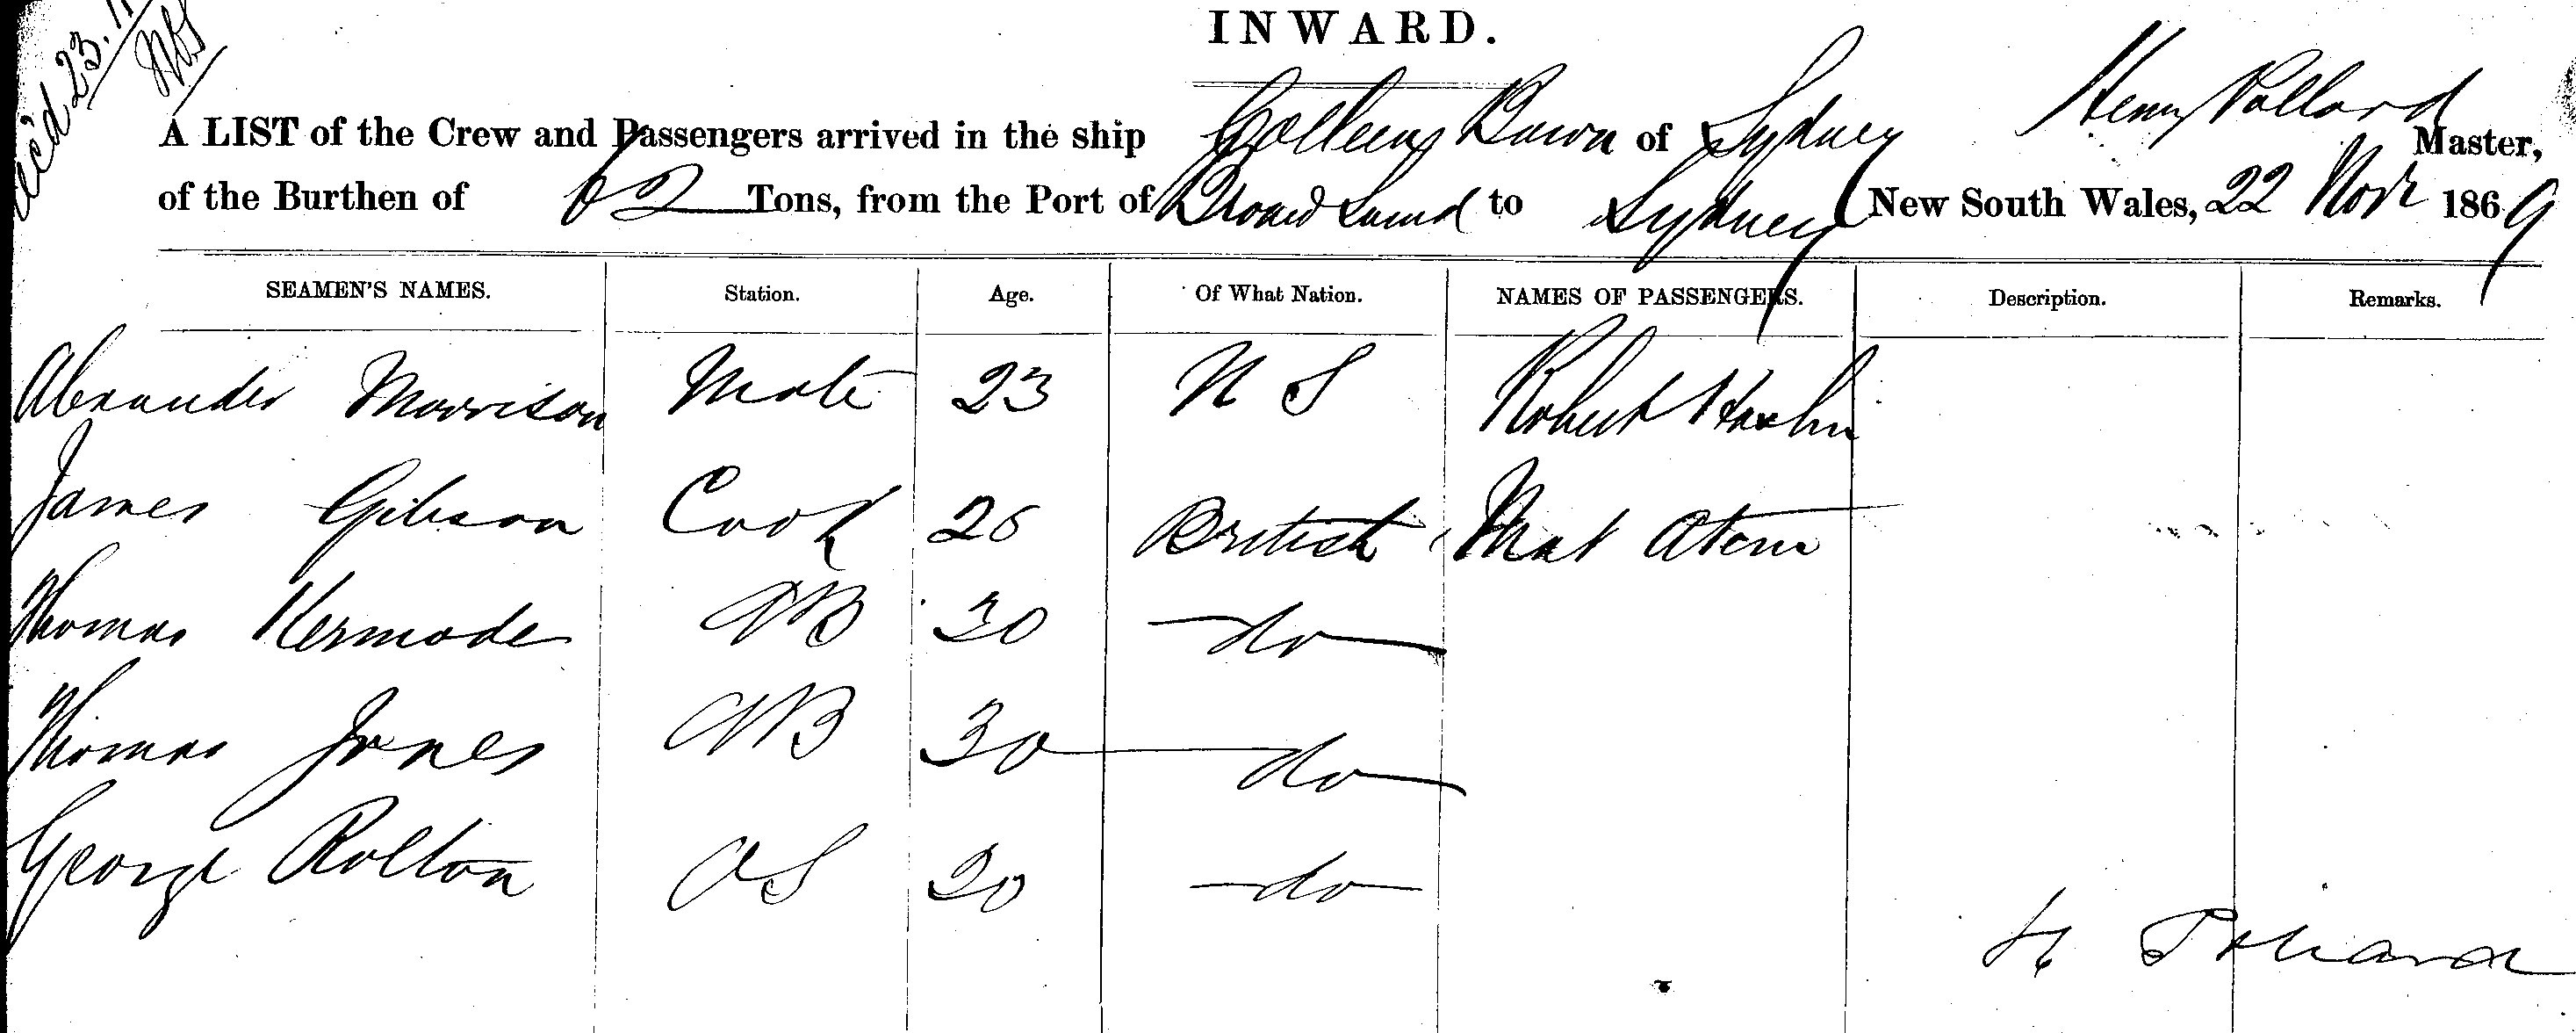 rec'd 23.11
INWARD.
A LIST of the Crew and Passengers arrived in the ship Colleen Bawn of Sydney Henry Pollard Master,
of the Burthen of 62 Tons, from the Port of Broad Sound to Sydney New South Wales, 22 Novr 1869
SEAMEN'S NAMES. Station. Age. Of What Nation. NAMES OF PASSENGERS. Description. Remarks.
Alexander Morrison Mate 23 N S Robert
James Gibson Cook 26 British Mat
Thomas Kermode AB 30 do
Thomas Jones AB 30 do
George Rolton OS 20 do
H Pollard